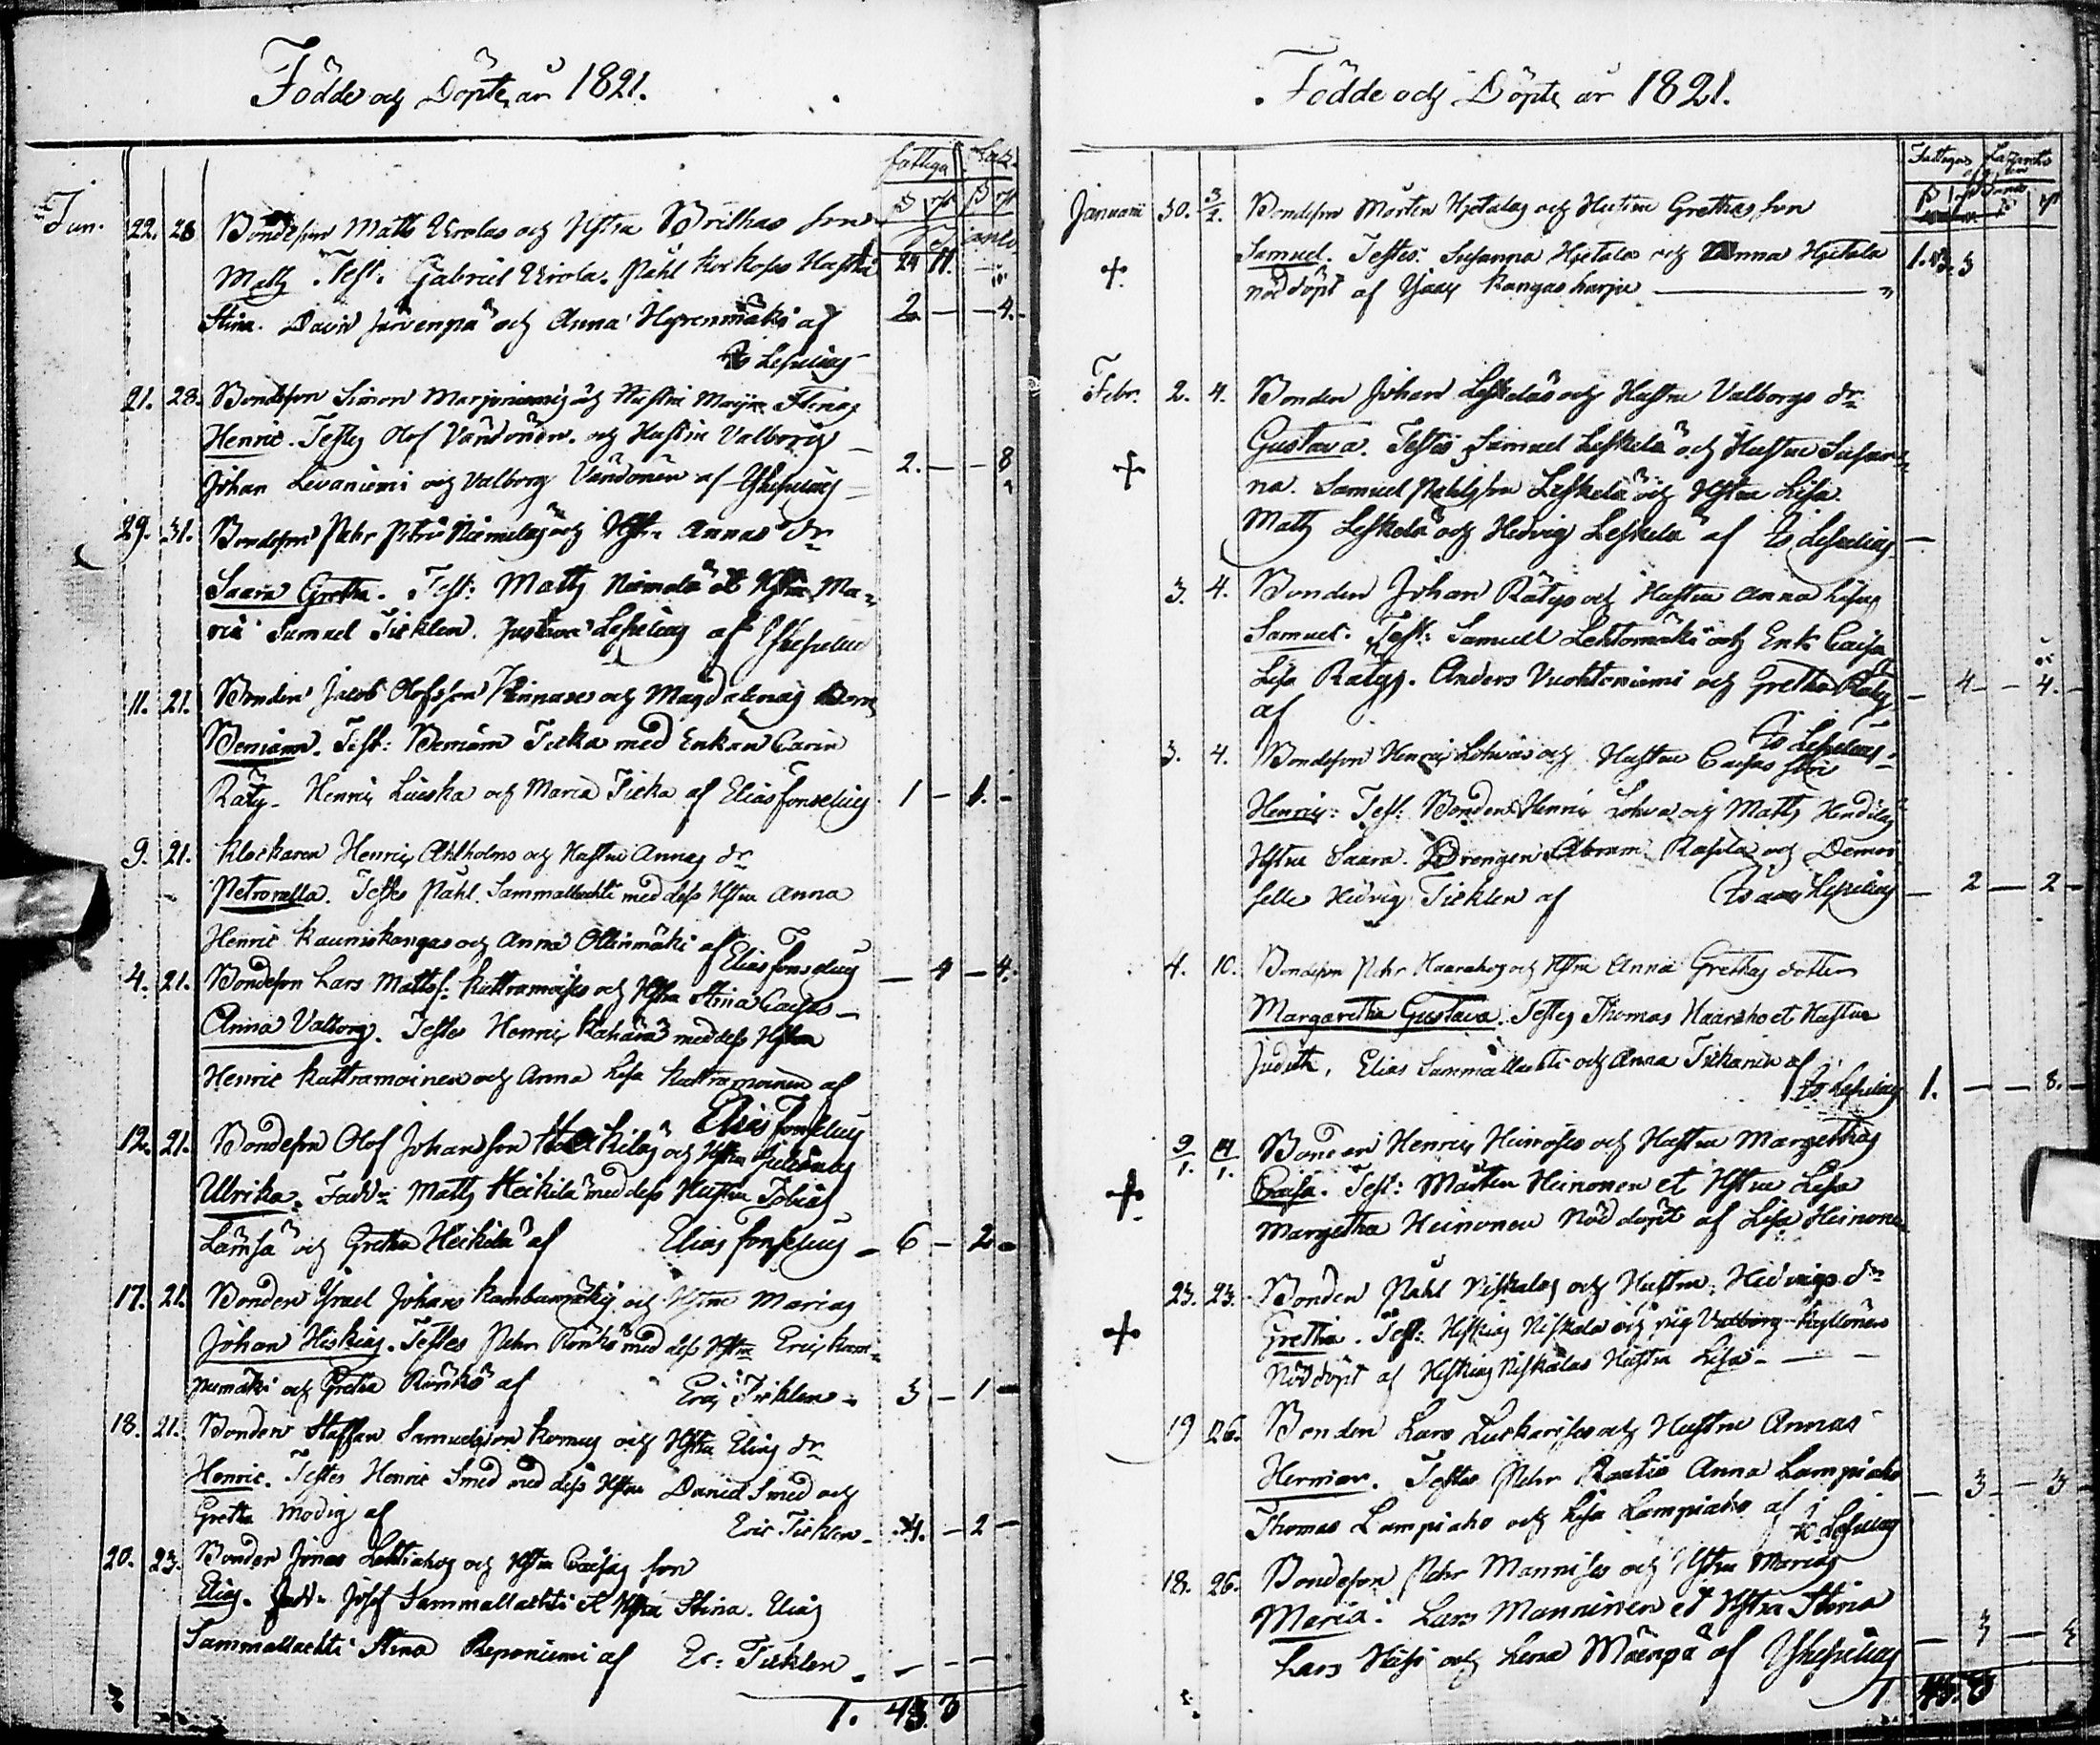 Födde och Döpte år 1821.
fattiga
Jan. 22. 28 Bondeson Matts Urolas och Hstra Brithas son
Matts. Test. Gabriel Urola. Påhl Korkosos Hustru 24 11.
Stina. David Järvenpä och Anna Heprenmäki af 2 — — 4.
21. 28. Bondeson Simon Marjoniemis och Hustru Marjas
Henric. Testes Olof Vändönen och Hustru Valborg
Johan Levaniemi och Valborg Vändönen af 2. — — 8
29. 31. Bondeson Pehr Niemeläs och Hstr Annas dr
Saara Gretha. Test: Matts Niemelä et Hstr Ma-
ria Samuel Ticklen. Gustava Lesselius af
11. 21. Bonden Jacob Olofsson Kinnases och Magdalenas Barn
Beniam. Test: Beniam Ticka med Enkan Carin
Räty. Henric Luiska och Maria Ticka af Elias Fonselius 1 — 1. —
9. 21. Klockaren Henric Ahlholms och Hustru Annas dr
Petronella. Testes Påhl Sammallachti med dess Hstru Anna
Henric Kauniskangas och Anna Ollinmäki af Elias Fonselius — 4 — 4.
4. 21. Bondeson Lars Mattss. Kattramoises och Hstra Stina Caisas
Anna Valborg. Testes Henric Kähärä med dess Hstra
Henric Kattramoinen och Anna Lisa Kattramoinen af
Elias Fonselius
12. 21. Bondeson Olof Johansson Heikiläs och Hstru
Ulrika. Fadd: Matts Heickilä med dess Hustru Tobias
Lämsä och Gretha Heickilä af Elias Fonselius — 6 — 2 —
17. 21. Bonden Israel Johans Kambumäkis och Hstru Marias
Johan Hiskias. Testes Pehr Rönkö med dess Hstru Eric Kam-
pumäki och Gretha Rönkö af Eric Ticklen — 3 — 1 —
18. 21. Bonden Staffan Samuelsson Komus och Hstra Elins dr
Henric. Testes Henric Smed med dess Hstru Daniel Smed och
Gretha Modig af Eric Ticklen — 4. — 2 —
20. 23. Bonden Jonas Lehtiahos och Hstru Caisas son
Elias. Fadd: Josef Sammallachti et Hstru Stina. Elias
Sammallachti Stina Reponiemi af Er: Ticklen —
1. 43 3
Födde och Döpte år 1821.
Januarii 30. Bondeson Mårten Hjetalas och Hustru Grethas son
Samuel. Testes: Susanna Hjetala och Anna Hjetala
nöddöpt af Isaac Kangasharju
Febr. 2. 4. Bonden Johan Leskeläs och Hustru Valborgs dr
Gustava. Testes Samuel Leskelä och Hustru Susan-
na. Samuel Påhlsson Leskelä och Hstru Lisa
Matts Leskelä och Hedvig Leskelä af Lesselius —
3. 4. Bonden Johan Rätys och Hustru Anna Lisas
Samuel. Test: Samuell Lehtomäki och Enk. Caisa
Lisa Rätys. Anders Vuohtoniemi och Gretha Räty — 4 — 4.
af Lesselius
3. 4. Bondeson Henric Lohvas och Hustru Caisas son
Henric. Test: Bonden Henric Lohva och Matts Hendilas
Hstru Saara. Drengen Abram Rasila och Demoi-
selle Hedvig Ticklen af Lesselius — 2 — 2 —
4. 10. Bondeson Pehr Haarahos och Hstru Anna Grethas dotter
Margaretha Gustava. Testes Thomas Haaraho et Hustru
Judith, Elias Sammallachti och Anna Tickanen af
Lesselius 1. — — 8.
Bonden Henric Heinoses och Hustru Margethas
Caisa. Test: Mårten Heinonen et Hstru Lisa
Margetha Heinonen nöddöpt af Lisa Heinonen
23. 23. Bonden Påhl Niskalas och Hustru Hedvigs dr
Gretha. Test: Hiskias Niskala och pig Valborg Kyllönen
Nöddöpt af Hiskias Niskalas Hustru Lisa —
19 26. Bonden Lars Luckarises och Hustru Annas
Herman. Testes Pehr Rautio Anna Lampiaho — 3 — 3
Thomas Lampiaho och Lisa Lampiaho af Lesselius
18. 26. Bondeson Pehr Mannises och Hstru Marias
Maria. Lars Manninen et Hstru Stina
Lars Häise och Lena Mäenpä af